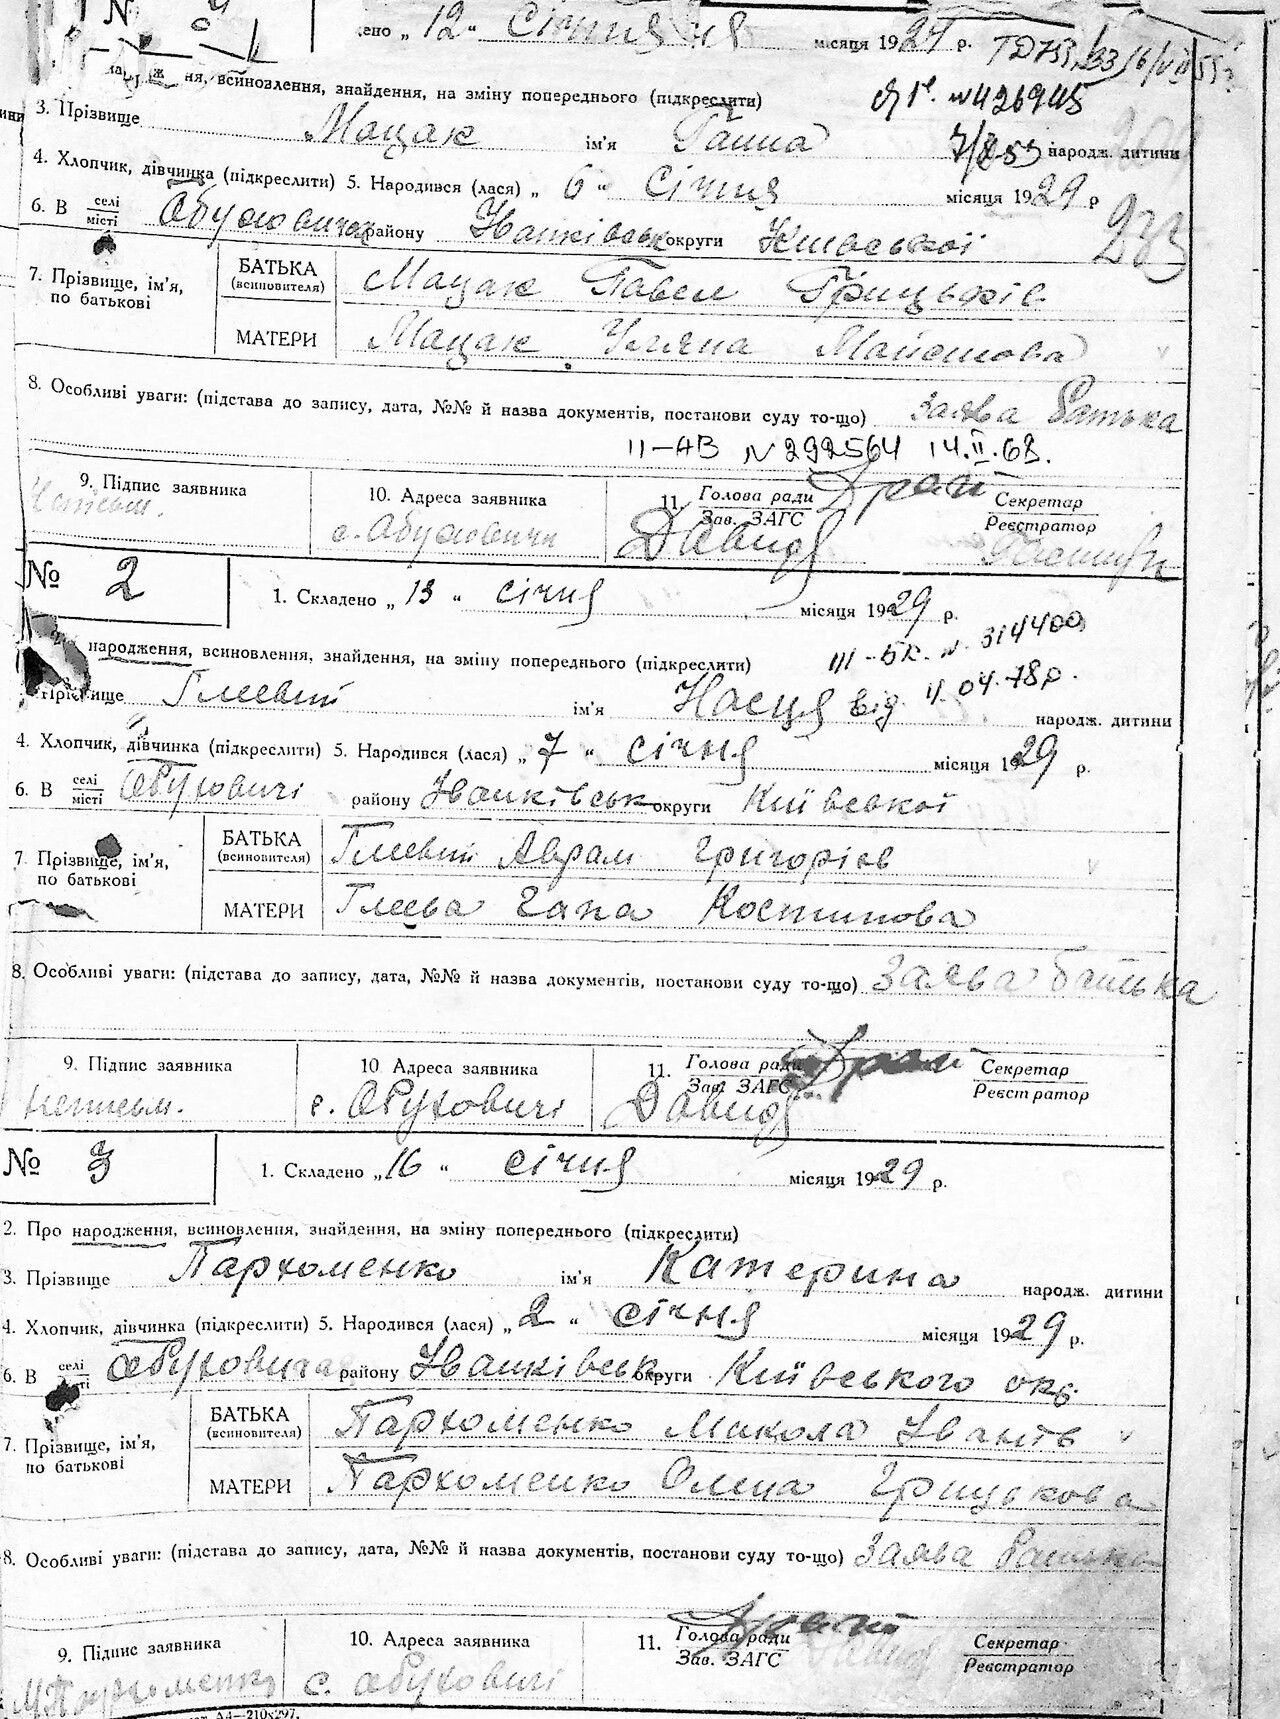 №
ено „ 12 " Січня місяця 1929 р.
ня, всиновлення, знайдення, на зміну попереднього (підкреслити)
№ 426945
3. Прізвище Мацак ім'я Ганна народж. дитини
4. Хлопчик, дівчинка (підкреслити) 5. Народився (лася) „ 6 " Січня місяця 1929 р
233
6. В селі/місті Обуховичах району Іванківськ округи Київської
7. Прізвище, ім'я, по батькові
БАТЬКА (всиновителя) Мацак Павел Грицьків
МАТЕРИ Мацак Уляна
8. Особливі уваги: (підстава до запису, дата, №№ й назва документів, постанови суду то-що) Заява батька
II-АВ № 292564 14.II.63.
9. Підпис заявника
10. Адреса заявника с. Обуховичи
11. Голова ради / Зав. ЗАГС
Секретар / Реєстратор
№ 2
1. Складено „ 13 " січня місяця 1929 р.
народження, всиновлення, знайдення, на зміну попереднього (підкреслити)
III-БК. №. 314400
від 11.04.78р.
Прізвище ім'я Насця народж. дитини
4. Хлопчик, дівчинка (підкреслити) 5. Народився (лася) „ 7 " січня місяця 1929 р.
6. В селі/місті Обуховичі району Іванківськ округи Київської
7. Прізвище, ім'я, по батькові
БАТЬКА (всиновителя) Аврам Григорів
МАТЕРИ Гапа Костикова
8. Особливі уваги: (підстава до запису, дата, №№ й назва документів, постанови суду то-що) Заява батька
9. Підпис заявника неписьм.
10 Адреса заявника с. Обуховичі
11. Голова ради / Зав. ЗАГС
Секретар / Реєстратор
№ 3
1. Складено „ 16 " січня місяця 1929 р.
2. Про народження, всиновлення, знайдення, на зміну попереднього (підкреслити)
3. Прізвище Пархоменко ім'я Катерина народж. дитини
4. Хлопчик, дівчинка (підкреслити) 5. Народився (лася) „ 2 " січня місяця 1929 р.
6. В селі/місті Обуховичах району Іванківськ округи Київського окр.
7. Прізвище, ім'я, по батькові
БАТЬКА (всиновителя) Пархоменко Микола Іванів
МАТЕРИ Пархоменко Олена Грицькова
8. Особливі уваги: (підстава до запису, дата, №№ й назва документів, постанови суду то-що) Заява батька
9. Підпис заявника М Пархоменко
10. Адреса заявника с. Обуховичі
11. Голова ради / Зав. ЗАГС
Секретар / Реєстратор
А4—210х297.